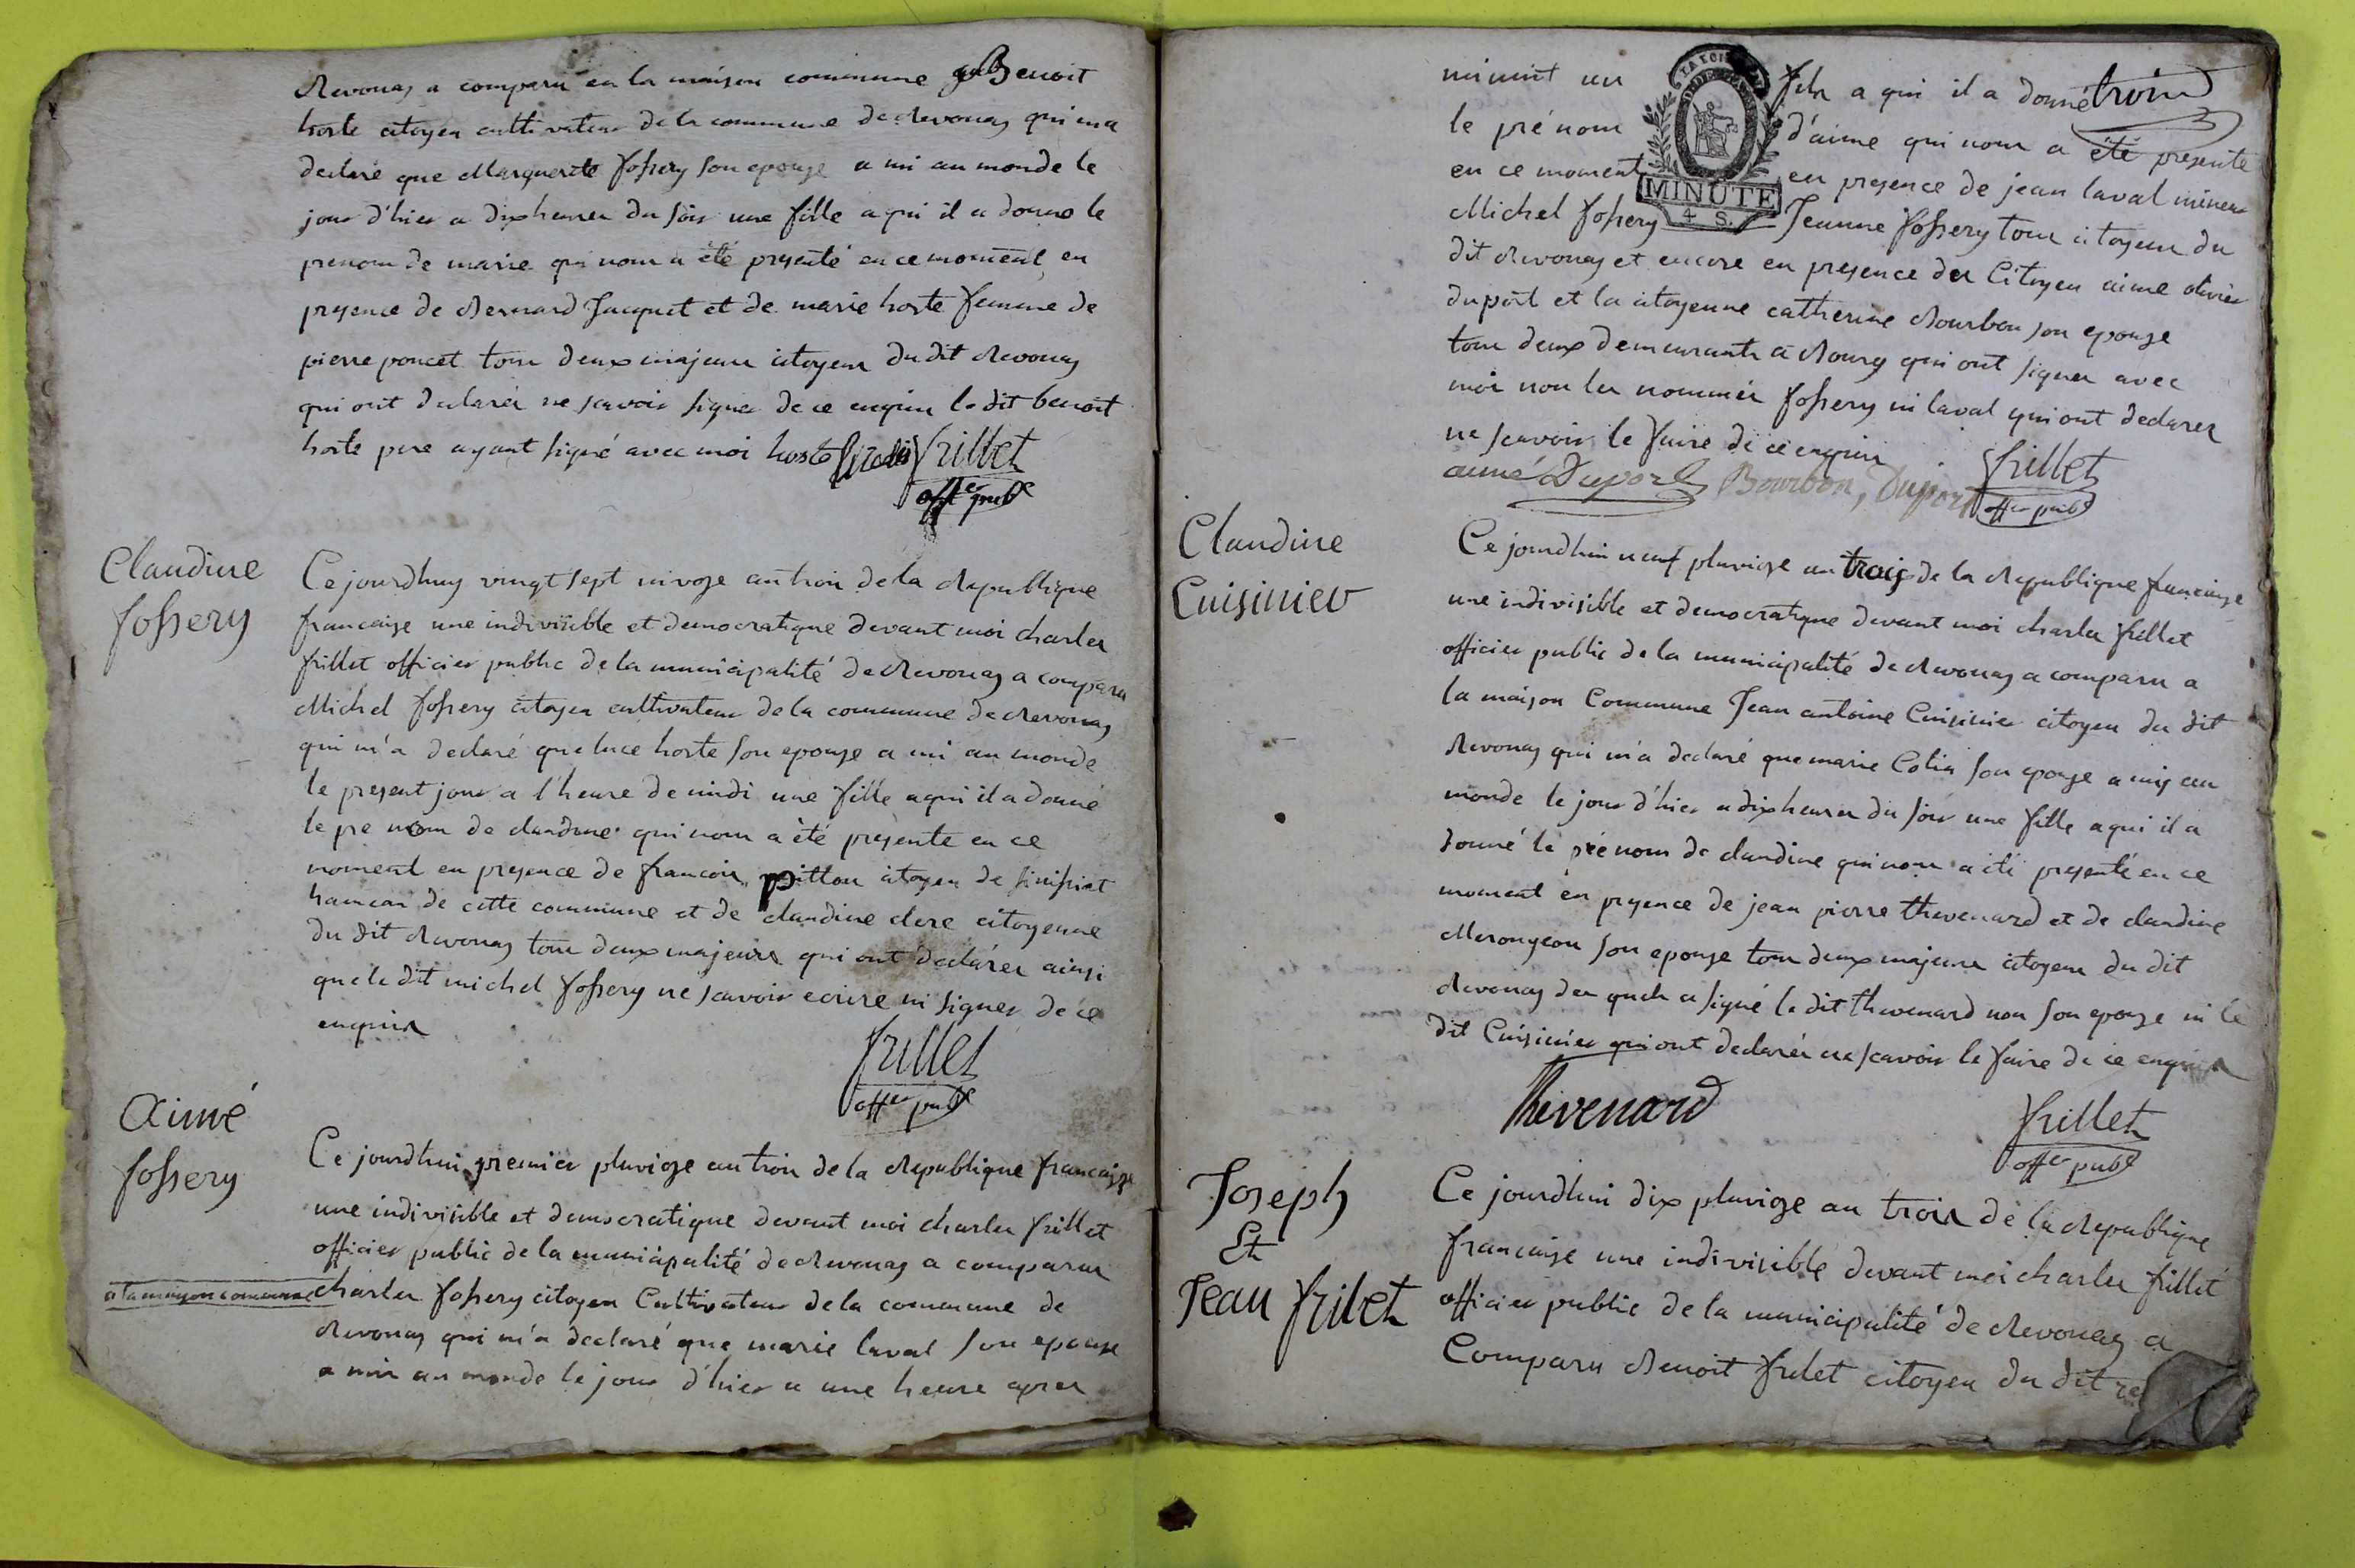 Revonas a comparu en la maison commune Benoit
hoste citoyen cultivateur de la commune de Revonas qui m'a
declaré que Marguerite fossery son epouze a mi au monde le
jour d'hier a dix heures du soir une fille a qui il a donné le
prenom de marie qui nous a été presenté en ce moment en
presence de Bernard Jacquet et de marie hoste femme de
pierre poncet tous deux majeurs citoyens du dit Revonas
qui ont declarés ne scavoir signer de ce enquis le dit benoit
hoste pere ayant signé avec moi hoste frillet
offer pube
Claudine
fossery
Ce jourdhuy vingt sept nivoze an trois de la Republique
francaize une indivisible et democratique devant moi charles
frillet officier public de la municipalité de Revonas a comparu
Michel fossery citoyen cultivateur de la commune de Revonas
qui m'a declaré que luce hoste son epouze a mi au monde
le present jour a l'heure de midi une fille a qui il a donné
le pre nom de claudine qui nous a été presente en ce
moment en presence de francois pitton citoyen de
hameau de cette commune et de claudine clere citoyenne
du dit Revonas tous deux majeurs qui ont declarés ainsi
que le dit michel fossery ne scavoir ecrire ni signer de ce
enquis
frillet
offer pube
Aimé
fossery
Ce jourdhui premier pluvioze an trois de la Republique francaize
une indivisible et democratique devant moi charles frillet
officier public de la municipalité de Revonas a comparu
a la maison commune charles fossery citoyen Cultivateur de la commune de
Revonas qui m'a declaré que marie laval son epouze
a mis au monde le jour d'hier a une heure apres
minuit un fils a qui il a donné trois
le prénom d'aime qui nous a été presenté
en ce moment en presence de jean laval mineur
MINUTE
4 S.
Michel fossery Jeanne fossery tous citoyens du
dit Revonas et encore en presence des Citoyen aime olivier
duport et la citoyenne catherine Bourbon son epouze
tous deux demeurants a Bourg qui ont signer avec
moi non les nommés fossery ni laval qui ont declarer
ne scavoir le faire de ce enquis
aimé Duport Bourbon, Duport frillet
offer pube
Claudine
Cuisinier
Ce jourdhui neuf pluvioze an trois de la Republique francaize
une indivisible et democratique devant moi charles frillet
officier public de la municipalité de Revonas a comparu a
la maison Commune Jean antoine Cuisinier citoyen du dit
Revonas qui m'a declaré que marie Colin son epouze a mis au
monde le jour d'hier a dix heures du soir une fille a qui il a
donné le prénom de claudine qui nous a été presenté en ce
moment en presence de jean pierre thevenard et de claudine
Merongeon son epouze tous deux majeurs citoyens du dit
Revonas des quels a signé le dit thevenard non son epouze ni le
dit Cuisinier qui ont declarés ne scavoir le faire de ce enquis
Thevenard
frillet
offer pube
Joseph
Et
Jean frilet
Ce jourdhui dix pluvioze an trois de la Republique
francaise une indivisible devant moi charles frillet
officier public de la municipalité de Revonas a
Comparu Benoit frilet citoyen du dit